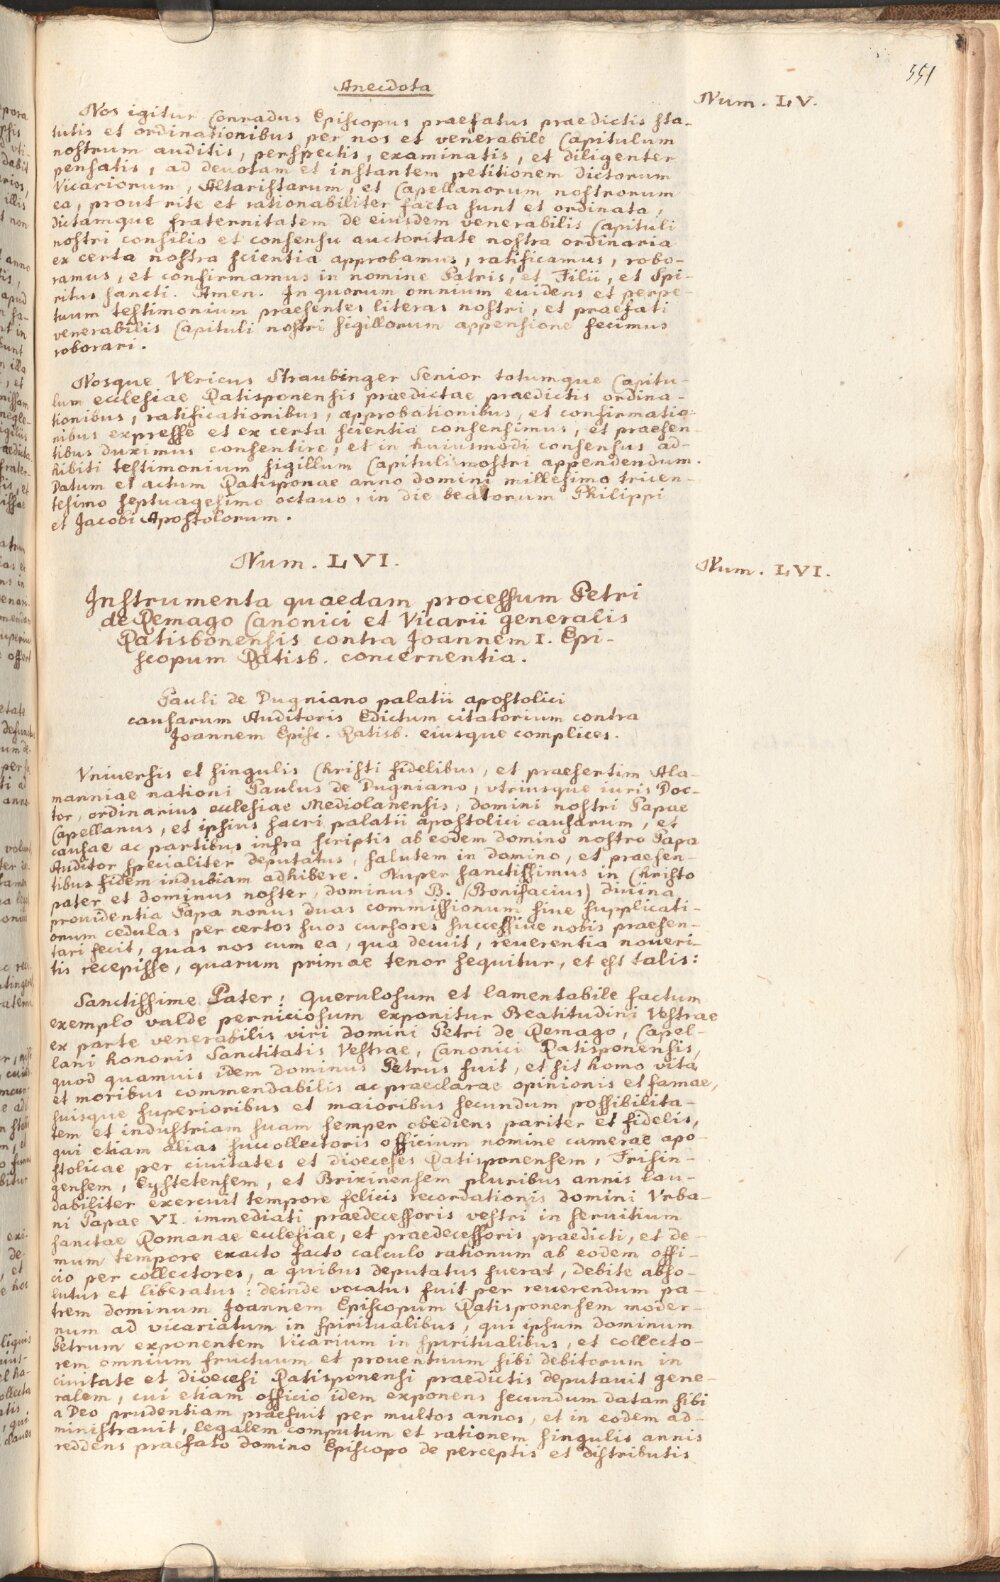 551
Anecdota
Num. LV.
Nos igitur Conradus Episcopus praefatus praedictis sta-
tutis et ordinationibus per nos et venerabile Capitulum
nostrum auditis, perspectis, examinatis, et diligenter
pensatis, ad devotam et instantem petitionem dictorum
Vicariorum, Altaristarum, et Capellanorum nostrorum
ea, prout rite et rationabiliter facta sunt et ordinata,
dictamque fraternitatem de eiusdem venerabilis Capituli
nostri consilio et consensu auctoritate nostra ordinaria
ex certa nostra scientia approbamus, ratificamus, robo-
ramus, et confirmamus in nomine Patris, et Filii, et Spi-
ritus sancti. Amen. In quorum omnium euidens et perpe-
tuum testimonium praesentes literas nostri, et praefati
venerabilis Capituli nostri sigillorum appensione fecimus
roborari.
Nosque Vlricus Straubinger Senior totumque Capitu-
lum ecclesiae Ratisponensis praedictae praedictis ordina-
tionibus, ratificationibus, approbationibus, et confirmatio-
nibus expresse et ex certa scientia consensimus, et praesen-
tibus duximus consentire, et in huiusmodi consensus ad-
hibiti testimonium sigillum Capituli nostri appendendum.
Datum et actum Ratisponae anno domini millesimo tricen-
tesimo septuagesimo octauo, in die beatorum Philippi
et Jacobi Apostolorum.
Num. LVI.
Num. LVI.
Instrumenta quaedam processum Petri
de Remago Canonici et Vicarii generalis
Ratisbonensis contra Joannem I. Epi-
scopum Ratisb. concernentia.
Pauli de Dugniano palatii apostolici
causarum Auditoris Edictum citatorium contra
Joannem Episc. Ratisb. eiusque complices.
Vniversis et singulis Christi fidelibus, et praesertim Ala-
manniae nationi Paulus de Dugniano, vtriusque iuris Doc-
tor, ordinarius ecclesiae Mediolanensis, domini nostri Papae
Capellanus, et ipsius sacri palatii apostolici causarum, et
causae ac partibus infra scriptis ab eodem domino nostro Papa
Auditor specialiter deputatus, salutem in domino, et praesen-
tibus fidem indubiam adhibere. Nuper sanctissimus in Christo
pater et dominus noster, dominus B. (Bonifacius) divina
providentia Papa nonus duas commissionum siue supplicati-
onum cedulas per certos suos cursores successive nobis praesen-
tari fecit, quas nos cum ea, qua decuit, reuerentia noveri-
tis recepisse, quarum primae tenor sequitur, et est talis:
Sanctissime Pater: Querulosum et lamentabile factum
exemplo valde perniciosum exponitur Beatitudini Vestrae
ex parte venerabilis viri domini Petri de Remago, Capel-
lani honoris Sanctitatis Vestrae, Canonici Ratisponensis,
quod quamuis idem dominus Petrus fuit, et sit homo vita
et moribus commendabilis ac praeclarae opinionis et famae,
suisque superioribus et maioribus secundum possibilita-
tem et industriam suam semper obediens pariter et fidelis,
qui etiam alias succollectoris officium nomine camerae apo-
stolicae per civitates et dioeceses Ratisponensem, Frisin-
gensem, Eystetensem, et Brixinensem pluribus annis lau-
dabiliter exercuit tempore felicis recordationis domini Vrba-
ni Papae VI. immediati praedecessoris vestri in seruitium
sanctae Romanae ecclesiae, et praedecessoris praedicti, et de-
mum tempore exacto facto calculo rationum ab eodem offi-
cio per collectores, a quibus deputatus fuerat, debite abso-
lutus et liberatus: deinde vocatus fuit per reuerendum pa-
trem dominum Joannem Episcopum Ratisponensem moder-
num ad vicariatum in spiritualibus, qui ipsum dominum
Petrum exponentem Vicarium in spiritualibus, et collecto-
rem omnium fructuum et prouentuum sibi debitorum in
civitate et dioecesi Ratisponensi praedictis deputavit gene-
ralem, cui etiam officio idem exponens secundum datam sibi
a Deo prudentiam praefuit per multos annos, et in eodem ad-
ministrauit, legalem computum et rationem singulis annis
reddens praefato domino Episcopo de perceptis et distributis